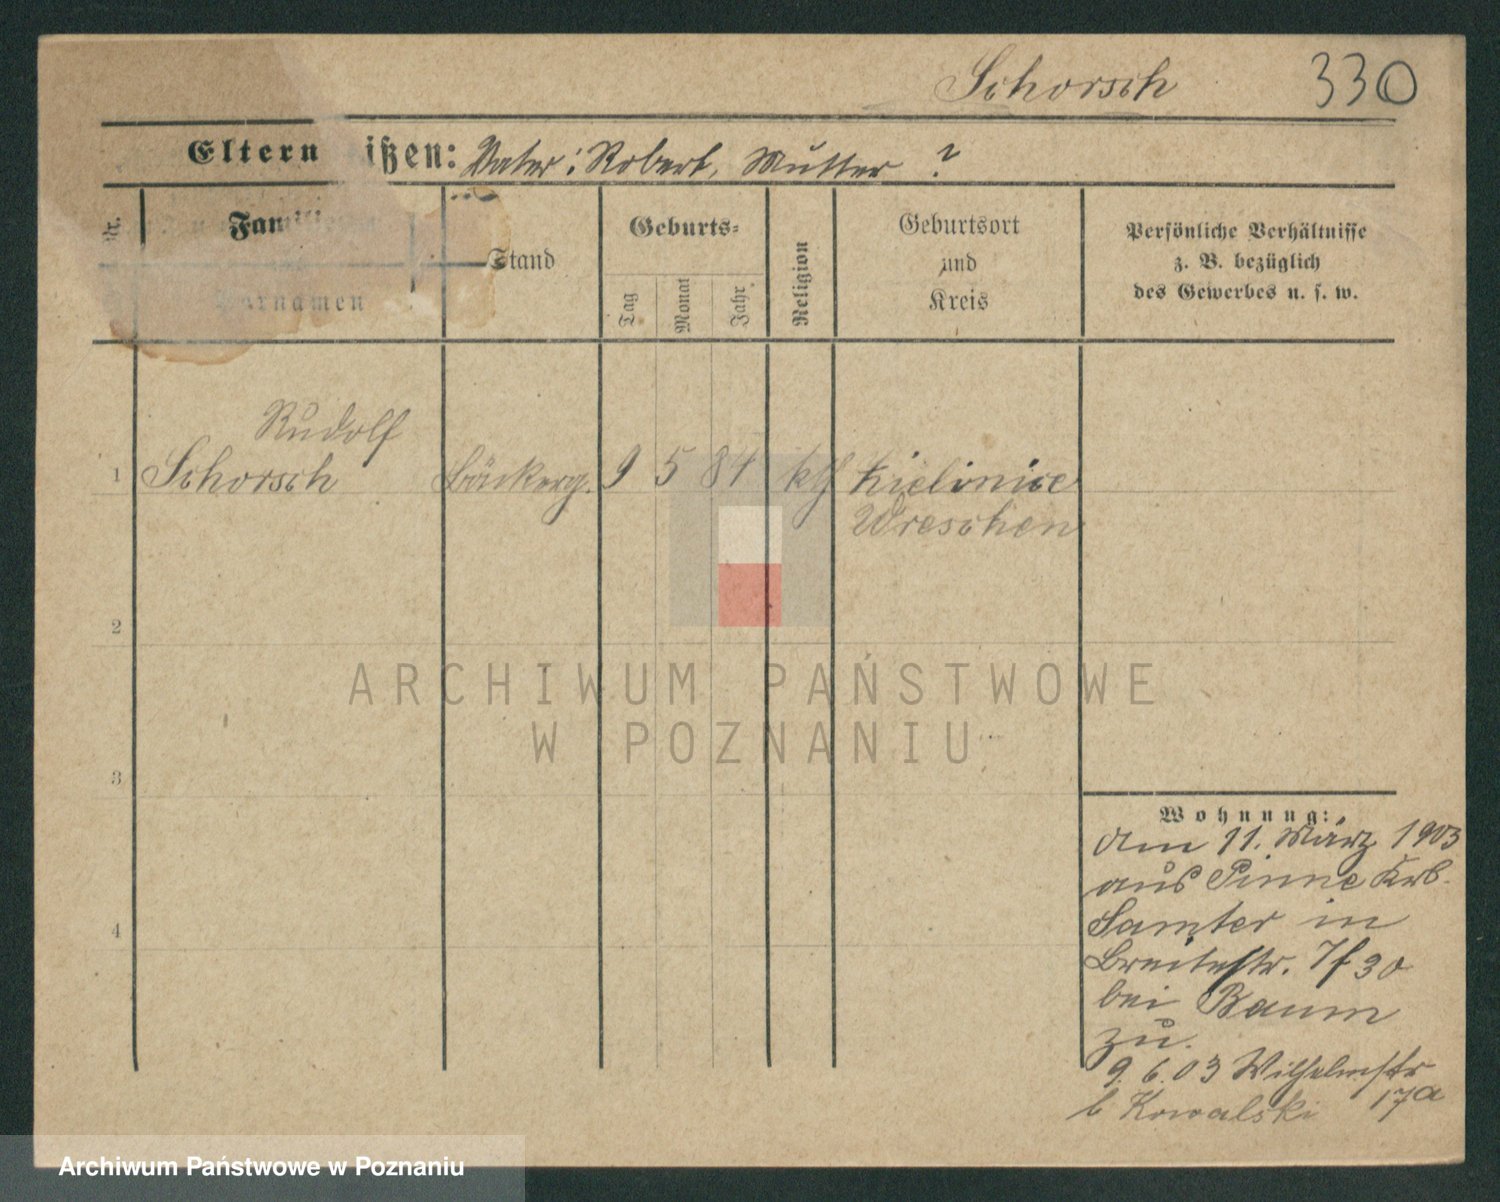 Schorsch 330
Eltern ißen: Vater: Robert, Mutter ?
Nr.
Familien
Vornamen
Stand
Geburts-
Tag
Monat
Jahr
Religion
Geburtsort
und
Kreis
Persönliche Verhältnisse
z. B. bezüglich
des Gewerbes u. s. w.
Rudolf
1 Schorsch Bäckerg. 9 5 84 kth Kielinice
Wreschen
2
3
4
Wohnung:
Am 11. März 1903
aus Pinne Krs.
Samter in
Breitestr. 30
bei Baum
zu.
9. 6. 03 Wilhelmstr
17a
b Kowalski
ARCHIWUM PAŃSTWOWE
W POZNANIU
Archiwum Państwowe w Poznaniu